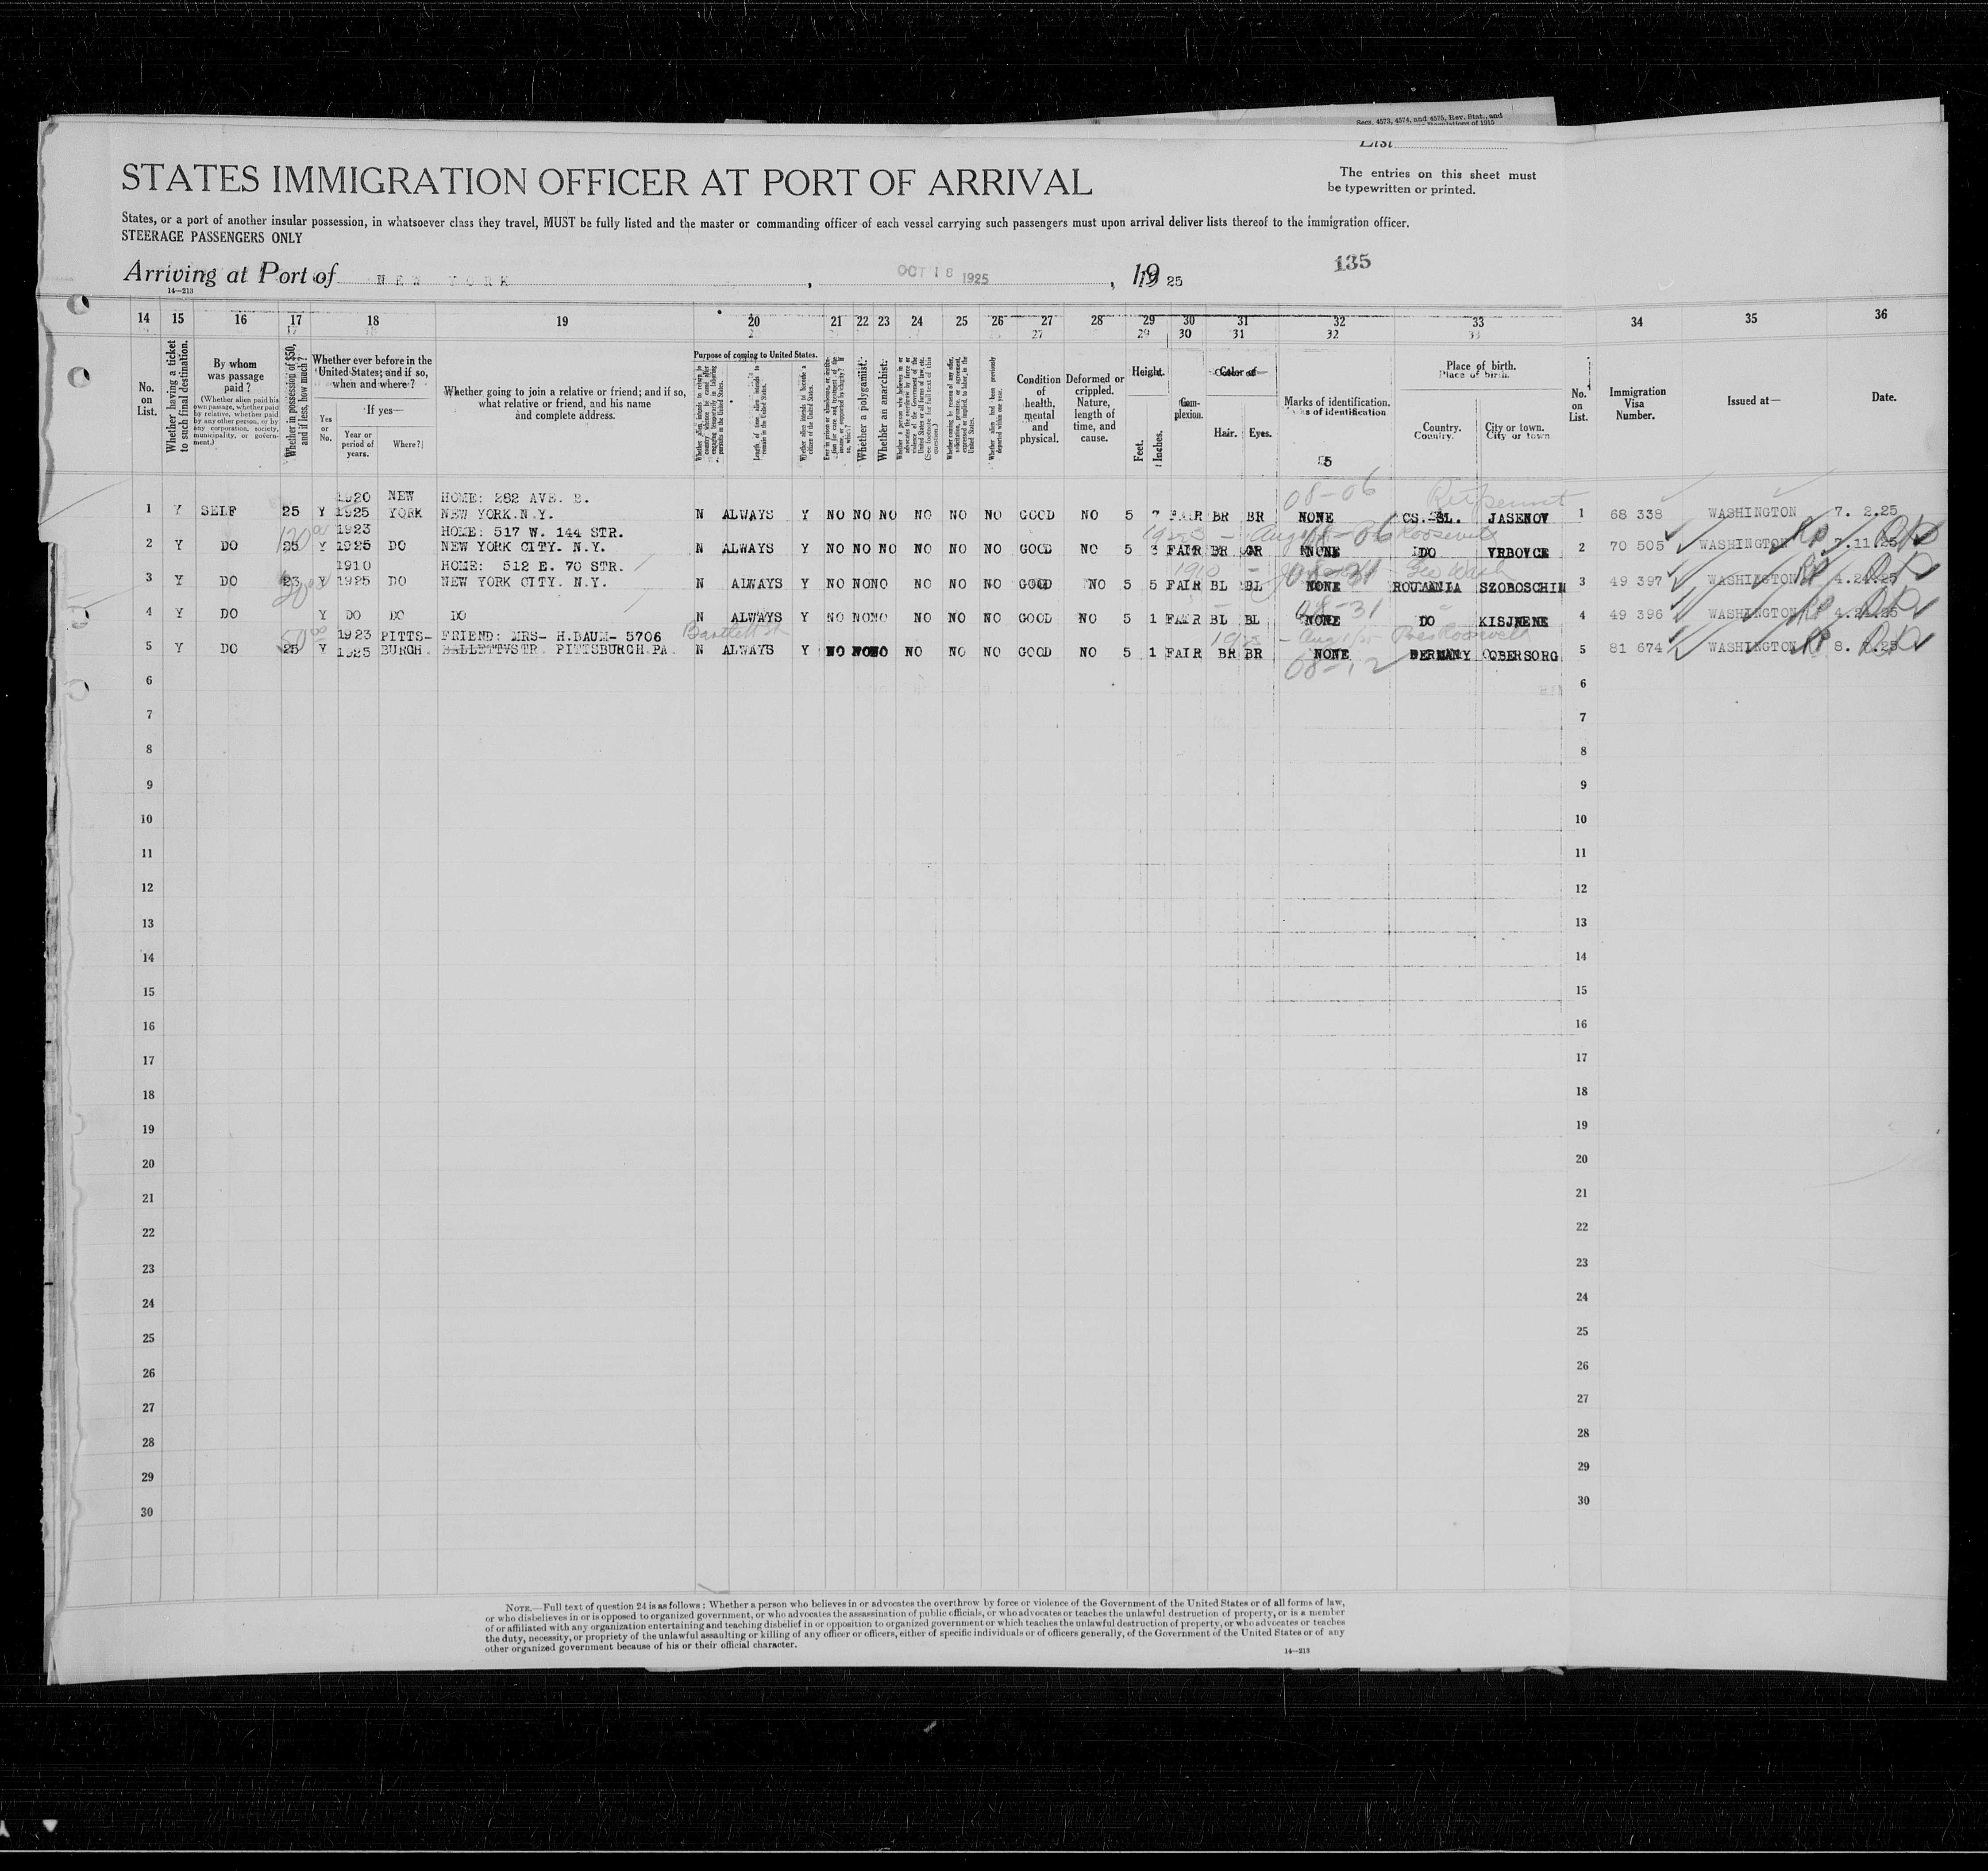 Secs. 4573, 4574, and 4575, Rev. Stat., and
Regulations of 1915
List
STATES IMMIGRATION OFFICER AT PORT OF ARRIVAL
The entries on this sheet must
be typewritten or printed.
States, or a port of another insular possession, in whatsoever class they travel, MUST be fully listed and the master or commanding officer of each vessel carrying such passengers must upon arrival deliver lists thereof to the immigration officer.
STEERAGE PASSENGERS ONLY
Arriving at Port of NEW YORK, OCT 18 1925, 19 25
135
14—213
14 15 16 17 18 19 20 21 22 23 24 25 26 27 28 29 30 31 32 33 34 35 36
No. on List.
Whether having a ticket to such final destination.
By whom was passage paid?
(Whether alien paid his own passage, whether paid by relative, whether paid by any other person, or by any corporation, society, municipality, or government.)
Whether in possession of $50, and if less, how much?
Whether ever before in the United States; and if so, when and where?
Yes or No.
If yes—
Year or period of years.
Where?
Whether going to join a relative or friend; and if so, what relative or friend, and his name and complete address.
Purpose of coming to United States.
Length of time alien intends to remain in the United States.
Whether alien intends to become a citizen of the United States.
Whether a polygamist.
Whether an anarchist.
Condition of health, mental and physical.
Deformed or crippled. Nature, length of time, and cause.
Height.
Feet. Inches.
Complexion.
Color of—
Hair. Eyes.
Marks of identification.
Place of birth.
Country. City or town.
No. on List.
Immigration Visa Number.
Issued at—
Date.
1 Y SELF 25 Y 1920 1925 NEW YORK HOME: 282 AVE. B. NEW YORK.N.Y. N ALWAYS Y NO NO NO NO NO NO GOOD NO 5 7 FAIR BR BR NONE CS.-SL. JASENOV 1 68 338 WASHINGTON 7. 2.25
08-06
2 Y DO 25 Y 1923 1925 DO HOME: 517 W. 144 STR. NEW YORK CITY. N.Y. N ALWAYS Y NO NO NO NO NO NO GOOD NO 5 3 FAIR BR GR NONE DO VRBOVCE 2 70 505 WASHINGTON 7.11.25
3 Y DO 23 Y 1910 1925 DO HOME: 512 E. 70 STR. NEW YORK CITY. N.Y. N ALWAYS Y NO NO NO NO NO NO GOOD NO 5 5 FAIR BL BL NONE ROUMANIA SZOBOSCHIN 3 49 397 WASHINGTON 4.24.25
1910 - Geo Wash
08-31
4 Y DO Y DO DO DO N ALWAYS Y NO NO NO NO NO NO GOOD NO 5 1 FAIR BL BL NONE DO KISJNENE 4 49 396 WASHINGTON 4.24.25
08-31
5 Y DO 25 Y 1923 1925 PITTSBURGH. FRIEND: MRS- H.BAUM- 5706 STR. PITTSBURGH.PA. N ALWAYS Y NO NO NO NO NO NO GOOD NO 5 1 FAIR BR BR NONE GERMANY OBERSORG 5 81 674 WASHINGTON 8. 7.25
Bartlett St
Pres Roosevelt
08-12
6 6
7 7
8 8
9 9
10 10
11 11
12 12
13 13
14 14
15 15
16 16
17 17
18 18
19 19
20 20
21 21
22 22
23 23
24 24
25 25
26 26
27 27
28 28
29 29
30 30
NOTE.—Full text of question 24 is as follows: Whether a person who believes in or advocates the overthrow by force or violence of the Government of the United States or of all forms of law,
or who disbelieves in or is opposed to organized government, or who advocates the assassination of public officials, or who advocates or teaches the unlawful destruction of property, or is a member
of or affiliated with any organization entertaining and teaching disbelief in or opposition to organized government or which teaches the unlawful destruction of property, or who advocates or teaches
the duty, necessity, or propriety of the unlawful assaulting or killing of any officer or officers, either of specific individuals or of officers generally, of the Government of the United States or of any
other organized government because of his or their official character.
14—213